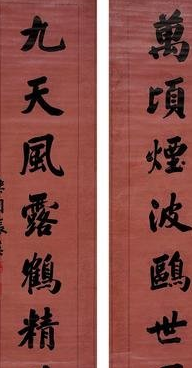 萬頃煙波鷗世
九天風露鶴精